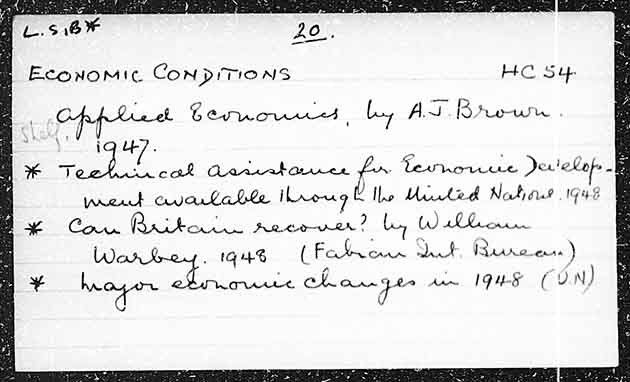 L.S,B* 20.
ECONOMIC CONDITIONS HC 54
Applied Economics, by A.J. Brown.
Shelf.
1947.
* Technical assistance for Economic Develop-
ment available through the United Nations. 1948
* Can Britain recover? by William
Warbey. 1948 (Fabian Int. Bureau)
* Major economic changes in 1948 (U.N)